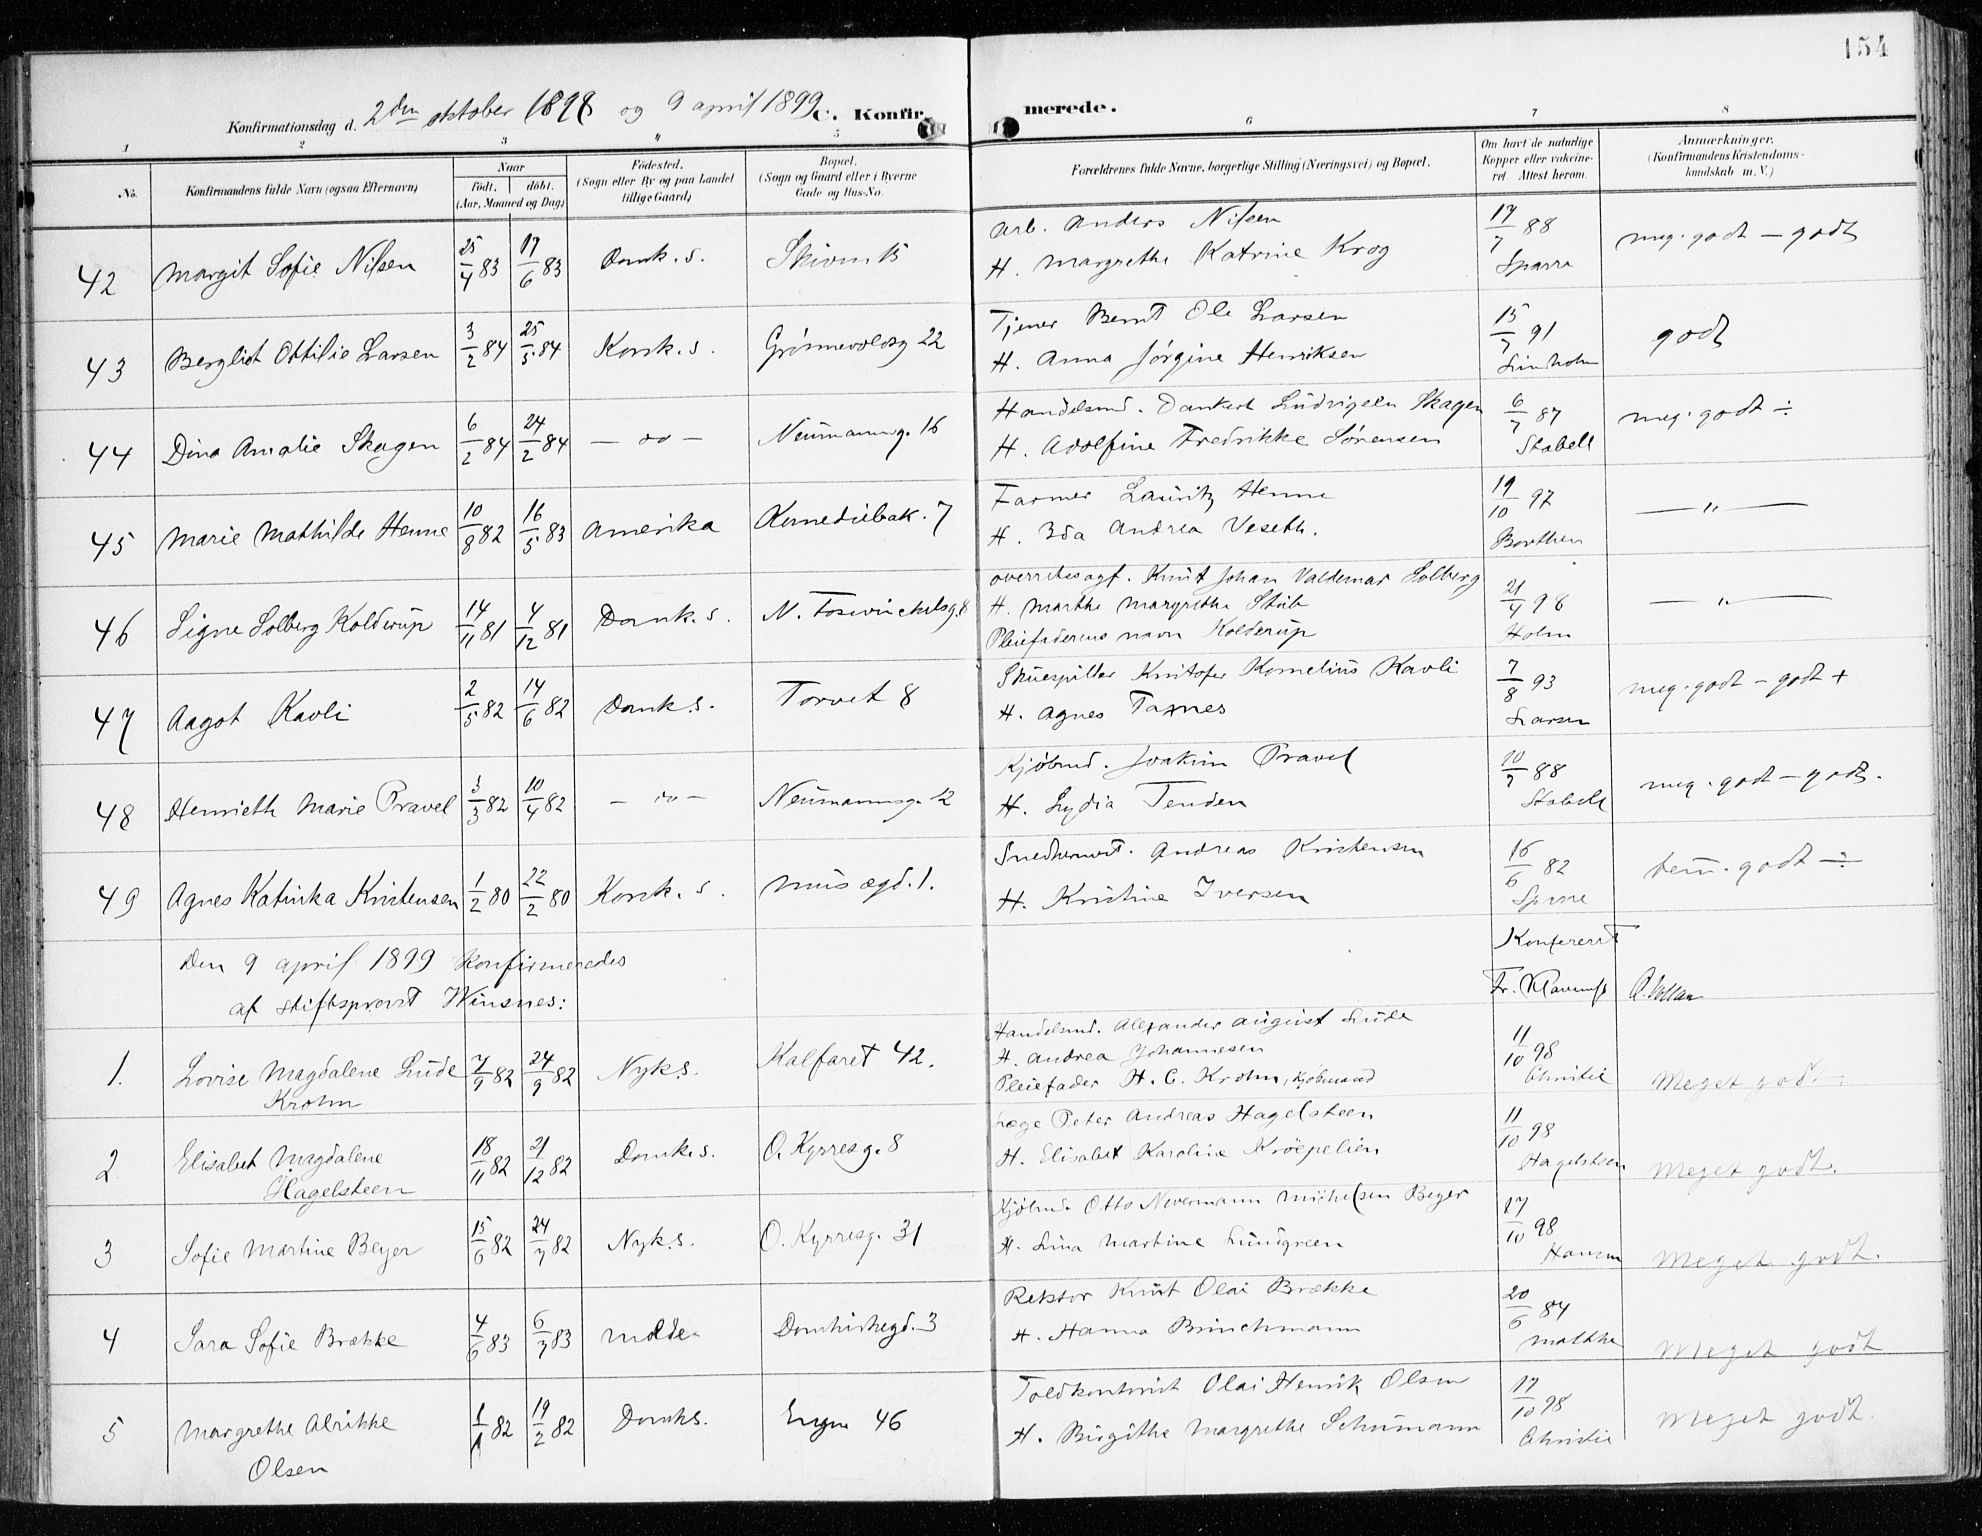 154
Konfirmationsdag d. 2den oktober 1898 og 9 april 1899 C. Konfirmerede.
1 2 3 4 5 6 7 8
No. Konfirmandens fulde Navn (ogsaa Efternavn) Naar født. døbt. (Aar, Maaned og Dag) Fødested. (Sogn eller By og paa Landet tillige Gaard) Bopæl. (Sogn og Gaard eller i Byerne Gade og Hus-No. Forældrenes fulde Navne, borgerlige Stilling (Næringsvei) og Bopæl. Om havt de naturlige Kopper eller vakcineret. Attest herom. Anmærkninger. (Konfirmandens Kristendomskundskab m. V.)
42 Margit Sofie Nilsen 25/4 83 17/6 83 Domk. s. Skivun 15 Arb. Anders Nilsen
H. Margrethe Katrine Krog 17/7 88 Sparre meg. godt – godt
43 Bergliot Ottilie Larsen 3/2 84 25/5 84 Korsk. s. Grønnevoldsg 22 Tjener Bernt Ole Larsen
H. Anna Jørgine Henriksen 15/7 91 Lindholm godt
44 Dina Amalie Skagen 6/2 84 24/2 84 – do – Neumannsg. 16 Handelsmd. Dankert Ludvigsen Skagen
H. Adolfine Fredrikke Sørensen 6/7 87 Stabell meg. godt ÷
45 Marie Mathilde Henne 10/8 82 16/5 83 Amerika Komediebak. 7 Farmer Lauritz Henne
H. Ida Andrea Veseth. 19/10 97 Borthen – „ –
46 Signe Solberg Kolderup 14/11 81 4/12 81 Domk. s. N. Foswinckelsg. 8 Overretssagf. Knut Johan Valdemar Solberg
H. Marthe Margrethe Stub
Pleiefaderens navn Kolderup 21/4 98 Holm – „ –
47 Aagot Kavli 2/5 82 14/6 82 Domk. s. Torvet 8 Skuespiller Kristofer Kornelius Kavli
H. Agnes Taxnes 7/8 93 Larsen meg. godt – godt +
48 Henrieth Marie Pravel 3/3 82 10/4 82 – do – Neumannsg. 12 Kjøbmd. Joakim Pravel
H. Lydia Tenden 10/7 88 Stabell meg. godt – godt.
49 Agnes Katinka Kristensen 1/2 80 22/2 80 Korsk. s. Musægd. 1. Snedkermst. Andreas Kristensen
H. Kristine Iversen 16/6 82 tem. godt ÷
Den 9 april 1899 konfirmeredes Konfereret
af stiftsprovst Winsnes: Fr. Klaveness
1. Lovise Magdalene Lude
Krohn 7/9 82 24/9 82 Nyk.s. Kalfaret 42. Handelsmd. Alexander August Lude
H. Andrea Johannesen
Pleiefader H. C. Krohn, Kjøbmand 11/10 98 Christie Meget godt
2 Elisabet Magdalene
Hagelsteen 18/11 82 21/12 82 Domk.s. O. Kyrresg. 8 Læge Peter Andreas Hagelsteen
H. Elisabet Karoline Kröepelien 11/10 98 Hagelsteen Meget godt.
3 Sofie Martine Beyer 15/6 82 24/7 82 Nyk.s. O. Kyrresg. 31 Kjøbmd. Otto Nevermann Michelsen Beyer
H. Lina Martine Lundgreen 17/10 98 Hansen Meget godt.
4 Sara Sofie Brække 4/6 83 6/7 83 Molde Domkirkegd. 3 Rektor Knut Olai Brække
H. Hanna Brinchmann 20/6 84 Malthe Meget godt
5 Margrethe Alrikke
Olsen 1/1 82 19/2 82 Domk s. Engen 46 Toldkontorist Olai Henrik Olsen
H. Birgithe Margrethe Schumann 17/10 98 Christie Meget godt.